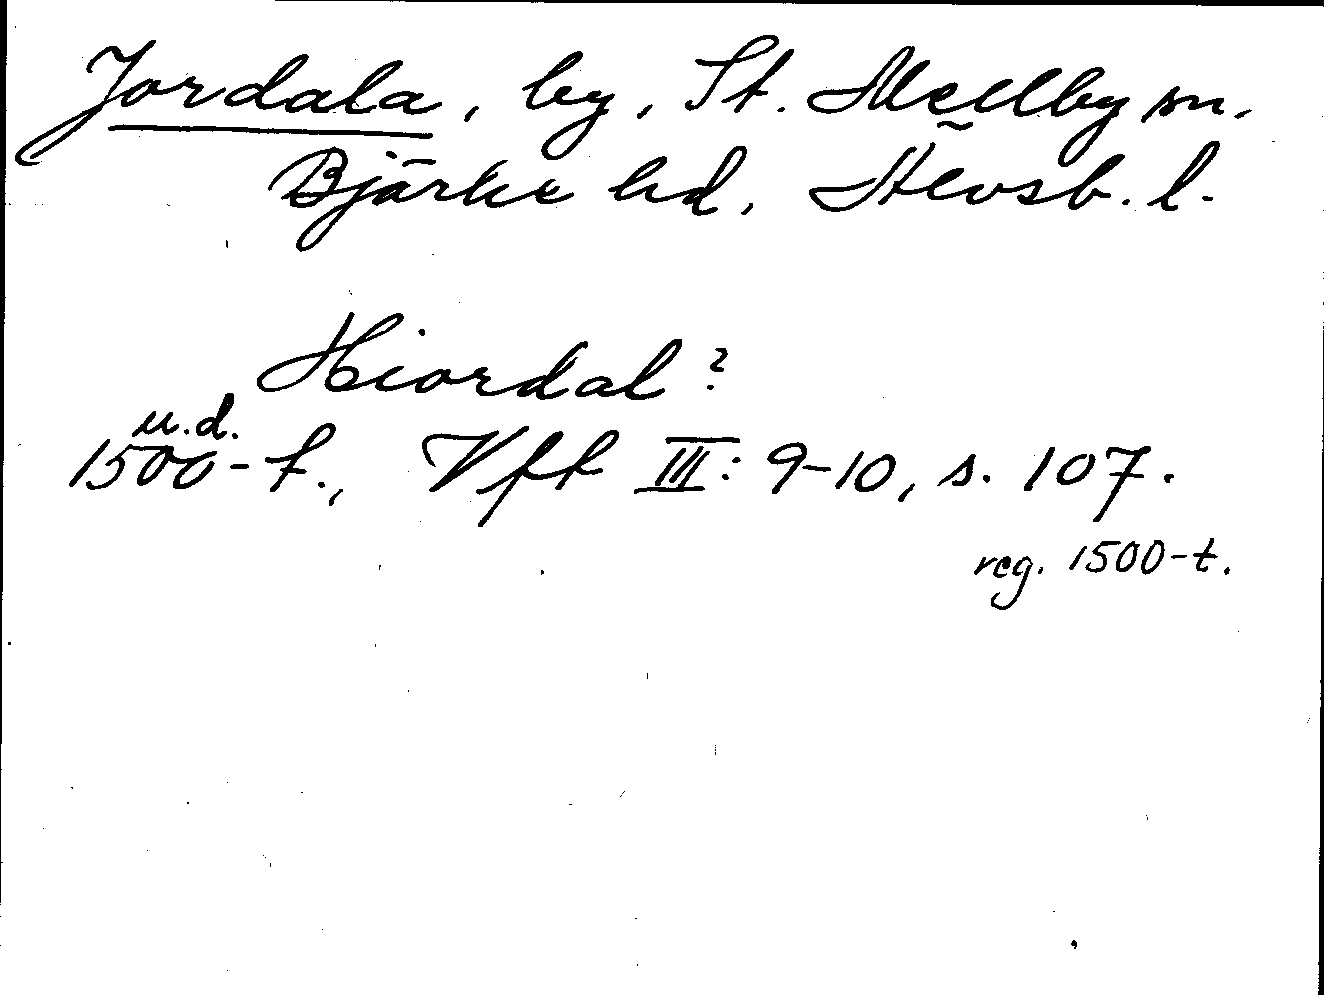 Jordala, by, St. Mellby sn.
Bjärke hd, Älvsb. l.
Hiordal?
u.d.
1500-t., Vft III: 9-10, s. 107.
reg. 1500-t.